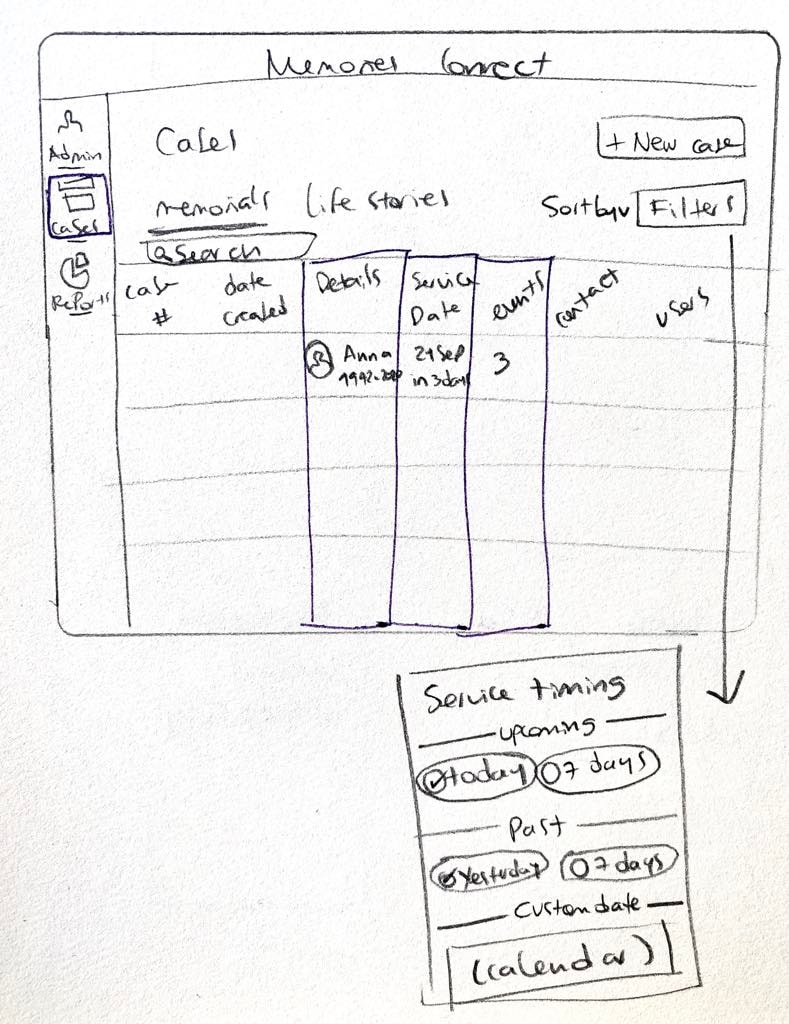 Memories Connect
Admin
Cases
Reports
Cases
+ New case
memorials
Life stories
Sort by v
Filters
Search
case #
date created
Details
Service Date
events
contact
users
Anna
1992-
24 Sep
in 3 days
3
Service timing
upcoming
today
7 days
Past
Yesterday
7 days
Custom date
(calendar)